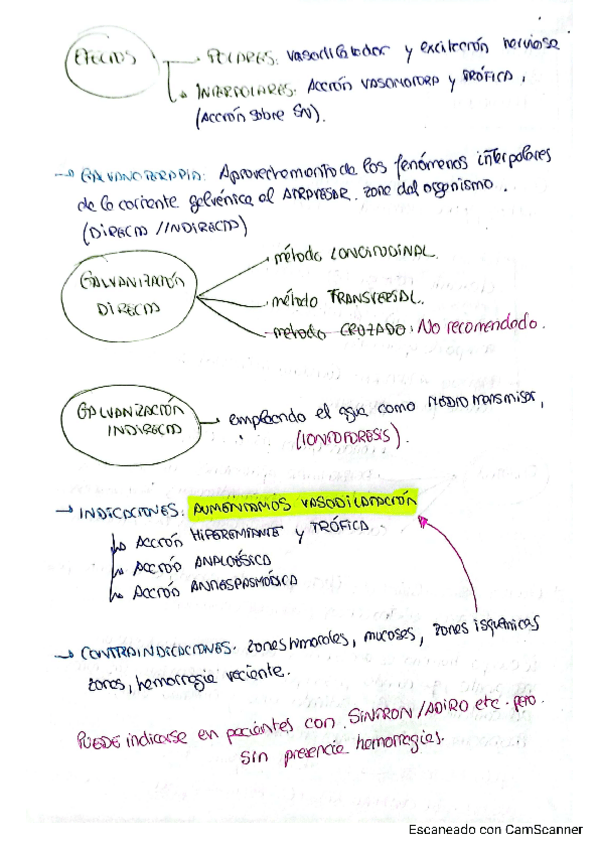 EFECTOS → POLARES: vasodilatador y excitación nerviosa
↳ INTERPOLARES: ACCIÓN VASOMOTORA y TRÓFICA.
(Acción sobre SN).
→ GALVANOTERAPIA: Aprovechamiento de los fenómenos interpolares
de la corriente galvánica al ATRAVESAR zona del organismo.
(DIRECTA //INDIRECTA)
GALVANIZACIÓN DIRECTA
método LONGITUDINAL.
método TRANSVERSAL.
método CROZADO: No recomendado.
GALVANIZACIÓN INDIRECTA → empleando el agua como MEDIO TRANSMISOR,
(IONTOFORESIS).
→ INDICACIONES: AUMENTAMOS VASODILATACIÓN
↳ ACCIÓN HIPEREMIANTE y TRÓFICA.
↳ ACCIÓN ANALGÉSICA
↳ ACCIÓN ANTIESPASMÓDICA
→ CONTRAINDICACIONES: zones tumorales, mucosas, zonas isquémicas
zonas, hemorragia reciente.
PUEDE indicarse en pacientes con SINTROM/ADIRO etc. pero
sin presencia hemorragias.
Escaneado con CamScanner